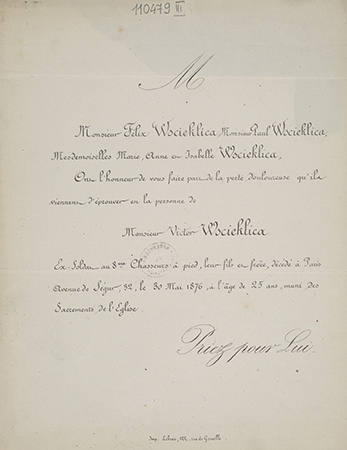 110479 III
M
Monsieur Félix Wscieklica, Monsieur Paul Wscieklica,
Mesdemoiselles Marie, Anne et Isabelle Wscieklica,
Ont l'honneur de vous faire part de la perte douloureuse qu'ils
viennent d'éprouver en la personne de
Monsieur Victor Wscieklica
Ex-Soldat au 8me Chasseurs à pied, leur fils et frère, décédé à Paris
Avenue de Ségur, 32, le 30 Mai 1876, à l'âge de 25 ans, muni des
Sacrements de l'Eglise
Priez pour Lui.
Imp. rue de Grenelle